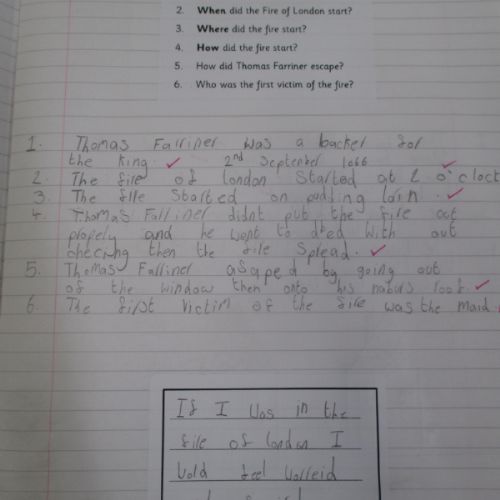 2. When did the Fire of London start?
3. Where did the fire start?
4. How did the fire start?
5. How did Thomas Farriner escape?
6. Who was the first victim of the fire?
1. Thomas Farriner was a backer for
the King. 2nd September 1666
2. The fire of london Started at 2 o'clock
3. The fire Started on pudding lain.
4. Thomas Farriner didnt put the fire out
propely and he went to bed with out
checing then the fire Spread.
5. Thomas Farriner asaped by going out
of the window then onto his naburs roof.
6. The first Victim of the fire was the maid.
If I was in the
fire of london I
wold feel worreid